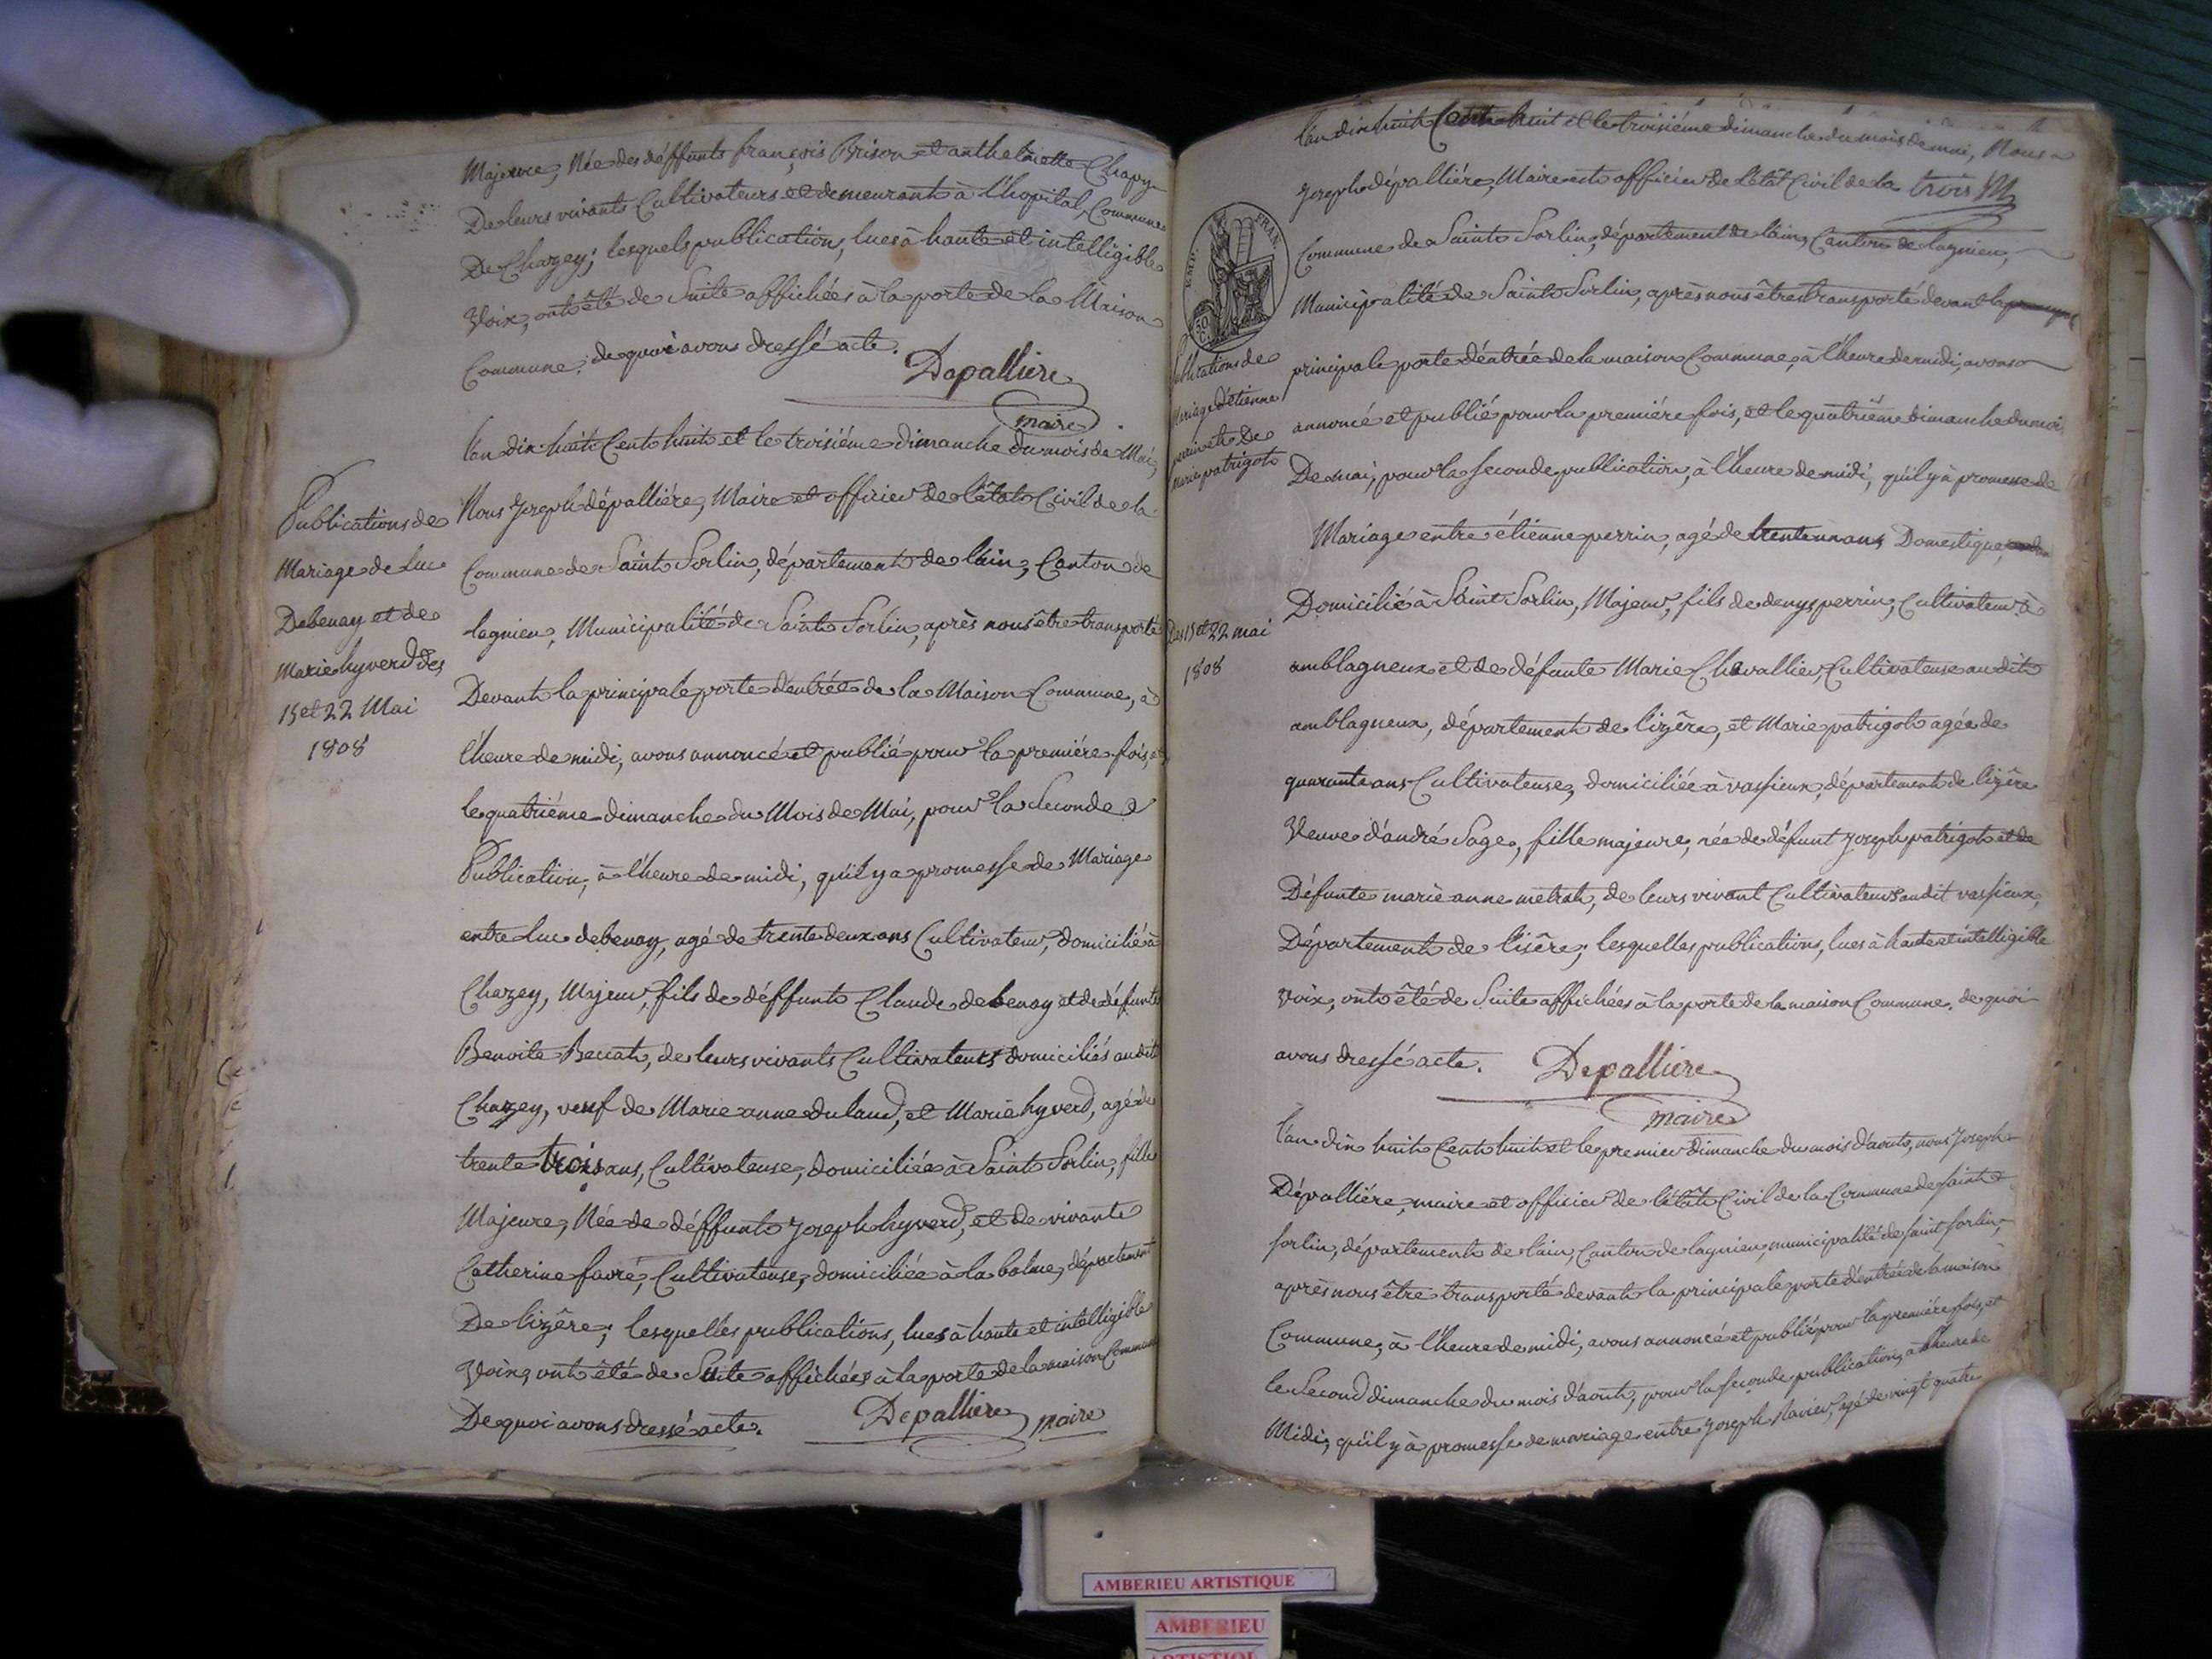 Majeure, Née des déffunts françois Brison et anthelmette Chapy
De leurs vivants Cultivateurs et demeurants à l'hopital, Commune
De Chazey; lesquels publication, lues à haute et intelligible
Voix, ont été de Suite affichées à la porte de la Maison
Commune, de quoi avons dressé acte.
Depalliere
maire
Publications de
Mariage de Luc
Debenay et de
Marie hyverd des
15 et 22 Mai
1808
l'an dix-huit Cent huit et le troisiéme dimanche du mois de Mai,
Nous Joseph dépalliére, Maire et officier de l'état Civil de la
Commune de Saint Sorlin, département de l'ain, Canton de
lagnieu, Municipalité de Saint Sorlin, après nous être transporté
Devant la principale porte d'entrée de la Maison Commune, à
l'heure de midi, avons annoncé et publié pour la premiére fois, et
le quatriéme dimanche du Mois de Mai, pour la Seconde
Publication, à l'heure de midi, qu'il y a promesse de Mariage
entre Luc debenay, agé de trente deux ans Cultivateur, domicilié à
Chazey, Majeur, fils de déffunt Claude debenay et de défunte
Benoite Beccat, de leurs vivants Cultivateurs domiciliés audit
Chazey, veuf de Marie anne dulaud, et Marie hyverd, agé de
trente trois ans, Cultivateuse, domiciliée à Saint Sorlin, fille
Majeure, Née de déffunt Joseph hyverd, et de vivante
Catherine favré, Cultivateuse, domiciliée à la balme, département
De l'izêre; lesquelles publications, lues à haute et intelligible
Voix, ont été de Suite affichées à la porte de la maison Commune
De quoi avons dressé acte.
Depalliere maire
EMP. FRAN.
Publications de
Mariage d'étienne
perrin et De
marie patrigot
Des 15 et 22 mai
1808
l'an dix huit Cent huit et le troisiéme dimanche du mois de mai, Nous
Joseph dépalliére, Maire et officier de l'état Civil de la trois
Commune de Saint Sorlin, département de l'ain, Canton de lagnieu,
Municipalité de Saint Sorlin, après nous être transporté devant la
principale porte d'entrée de la maison Commune, à l'heure de midi, avons
annoncé et publié pour la premiére fois, et le quatriême dimanche du moi
De mai, pour la seconde publication, à l'heure de midi, qu'il y à promesse de
Mariage entre étienne perrin, agé de trentennans Domestique,
Domicilié à Saint Sorlin, Majeur, fils de denys perrin, Cultivateur à
amblagneux et de défunte Marie Chavallier, Cultivateuse audit
amblagneux, département de l'izêre, et Marie patrigot agée de
quarante ans Cultivateuse, domiciliée à vassieux, département de l'izêre
Veuve d'andré Sage, fille majeure, née de défunt Joseph patrigot et de
Défunte marie anne metrat, de leurs vivant Cultivateurs audit vassieux,
Département de l'isêre; lesquelles publications, lues à haute et intelligible
voix, ont été de Suite affichées à la porte de la maison Commune. de quoi
avons dressé acte.
Depalliere
maire
l'an dix huit Cent huit et le premier dimanche du mois d'aout, nous Joseph
Dépalliére, maire et officier de l'état Civil de la Commune de saint
sorlin, département de l'ain, Canton de lagnieu, municipalité de saint sorlin,
après nous être transporté devant la principale porte d'entrée de la maison
Commune, à l'heure de midi, avons annoncé et publié pour la premiére fois, et
le Second dimanche du mois d'aout, pour la seconde publication, à l'heure de
Midi, qu'il y à promesse de mariage entre Joseph Ravier, agé de vingt quatre
AMBERIEU ARTISTIQUE
AMBERIEU
ARTISTIQUE